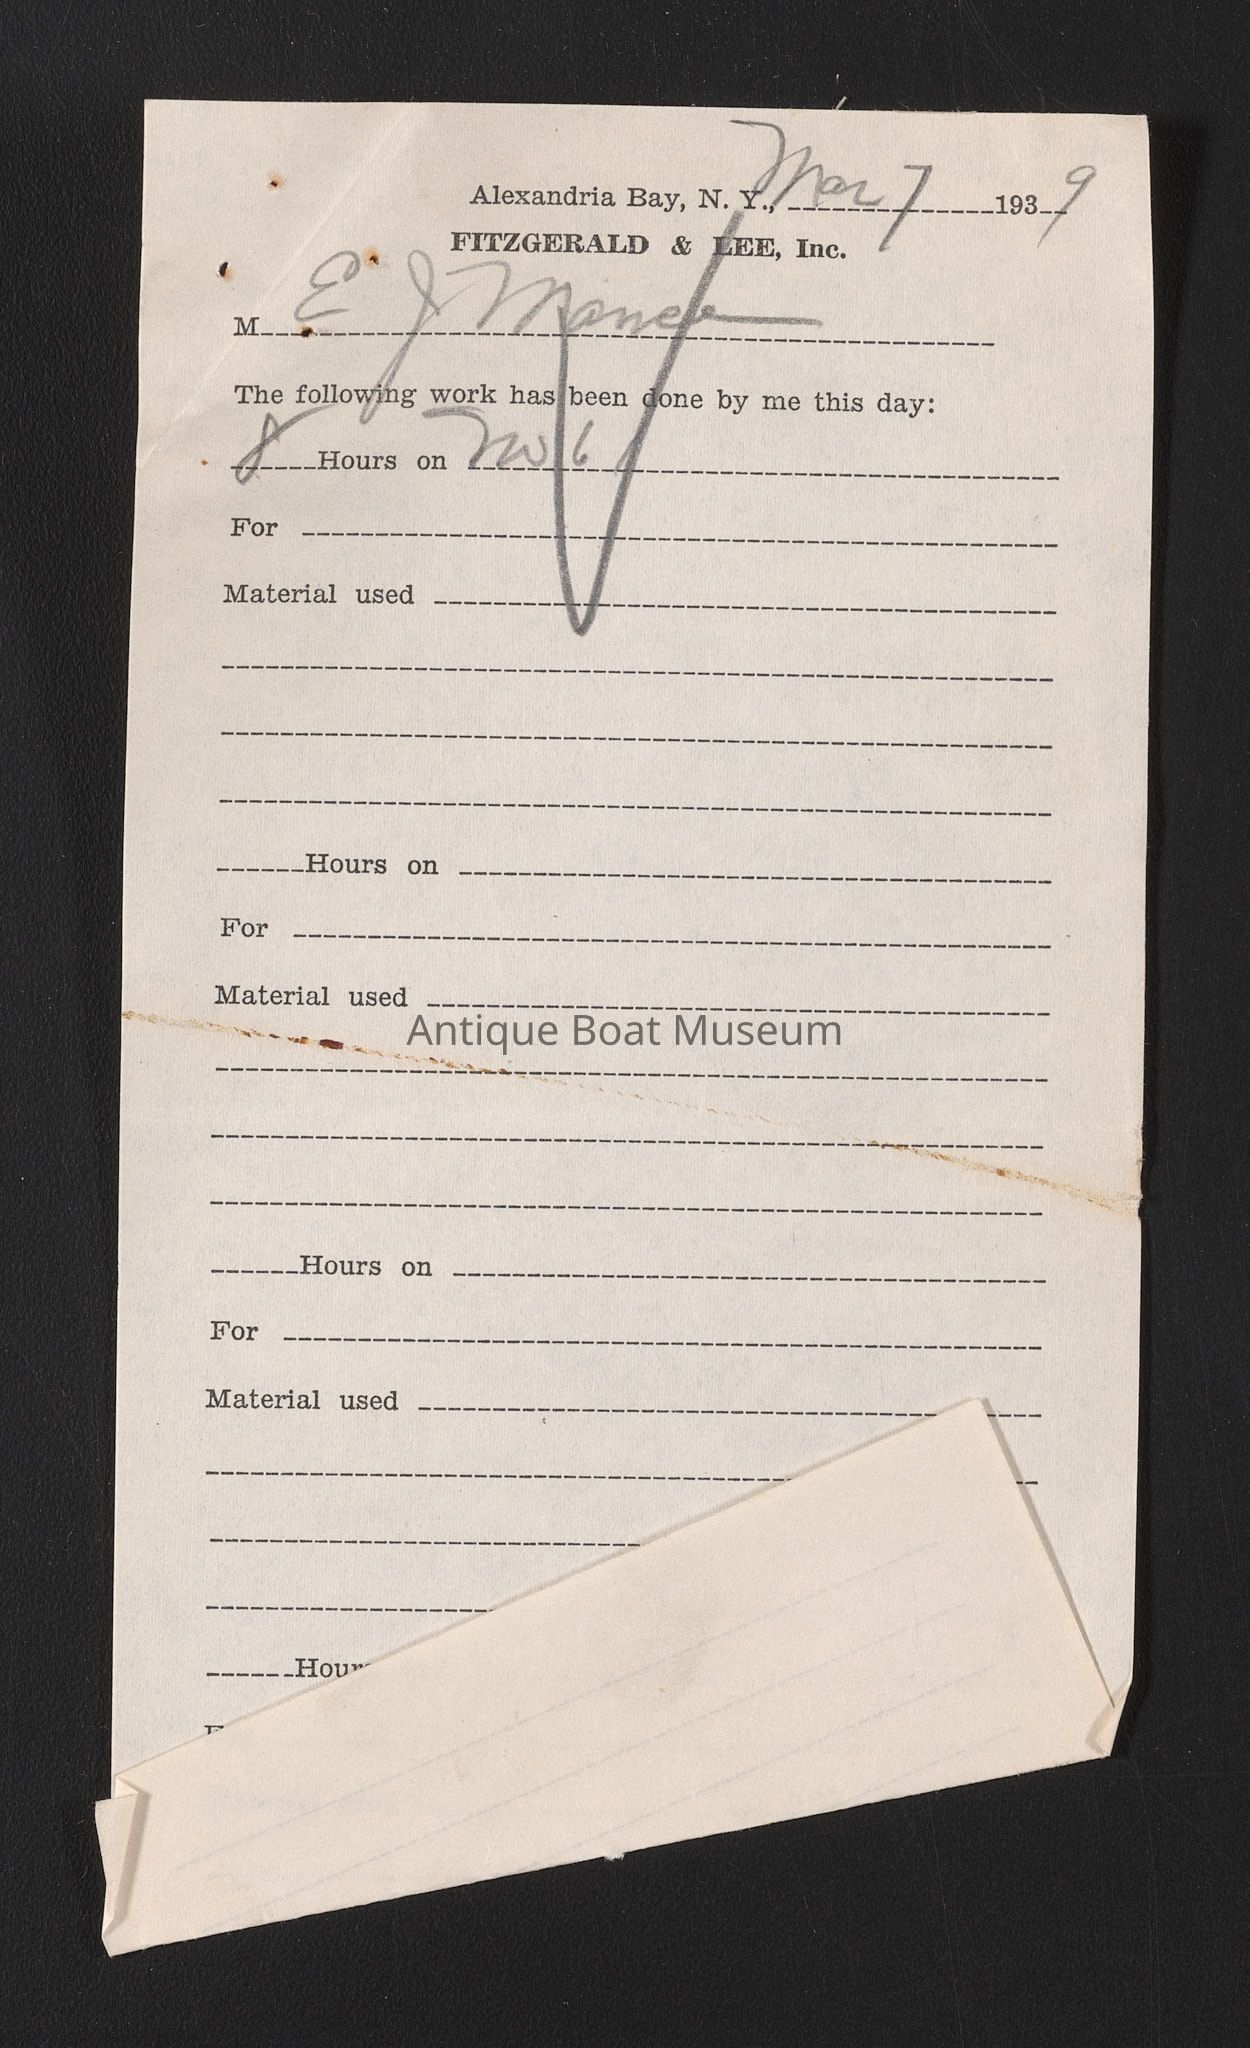 Alexandria Bay, N. Y., Mar 7 1939
FITZGERALD & LEE, Inc.
M E J
The following work has been done by me this day:
8 Hours on No 6
For
Material used
Hours on
For
Material used
Antique Boat Museum
Hours on
For
Material used
Hour